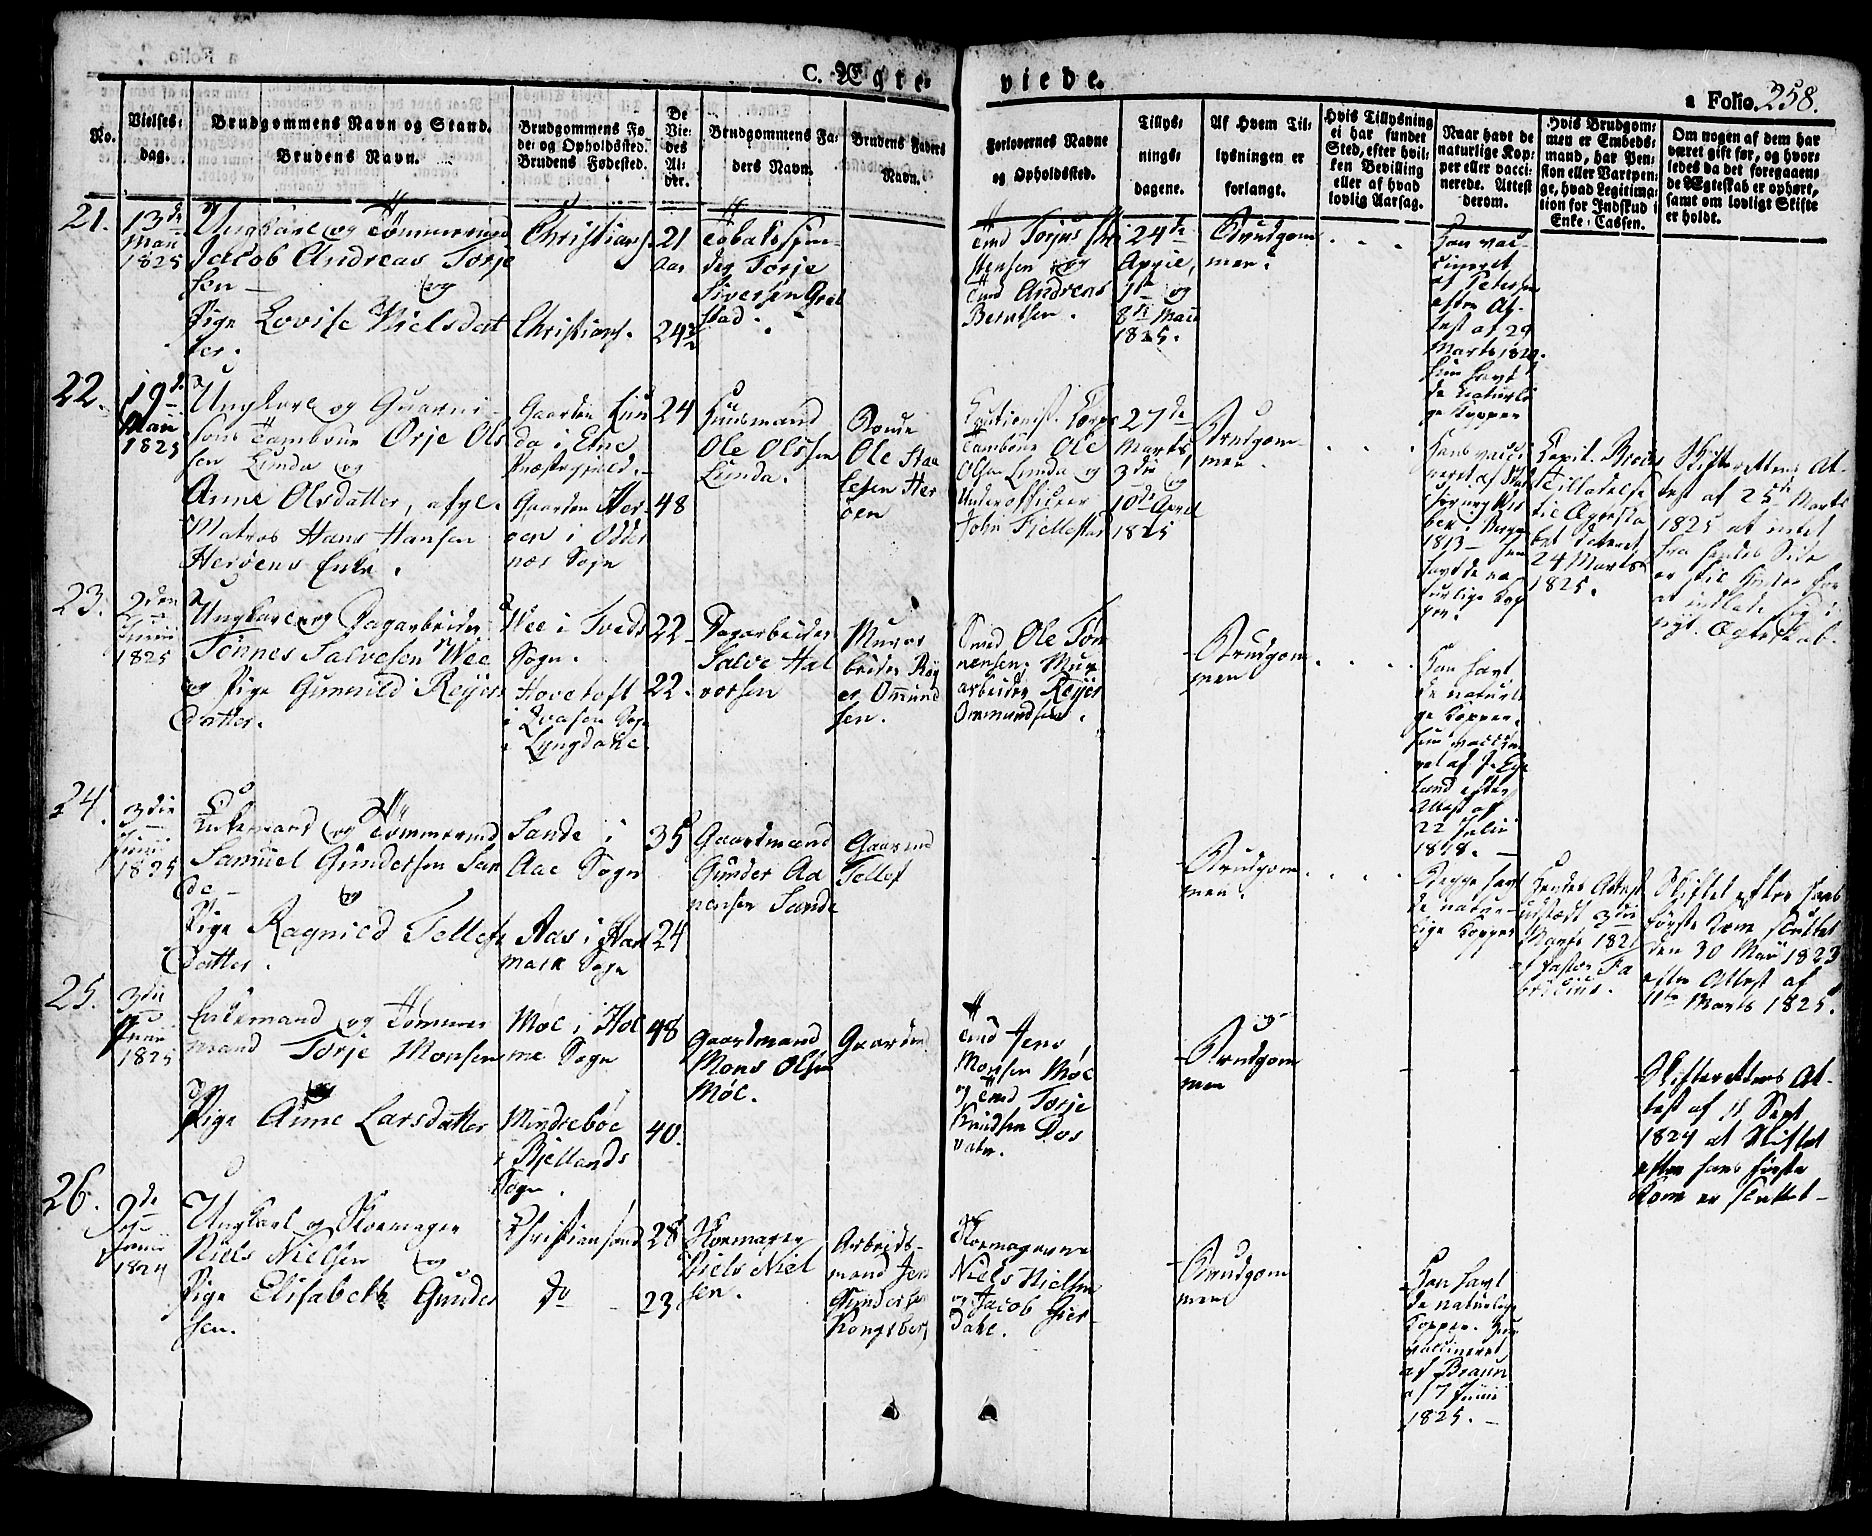 C. Ægte-
viede.
a Folio 258.
No.
Vielses-
dag.
Brudgommens Navn og Stand.
Brudens Navn.
Brudgommens Fø-
de- og Opholdssted.
Brudens Fødested.
De
Vie-
des
Al-
der.
Brudgommens Fa-
ders Navn.
Brudens Faders
Navn.
Forlovernes Navne
og Opholdssted.
Tillys-
nings-
dagene.
Af Hvem Til-
lysningen er
forlangt.
Hvis Tillysning
ei har fundet
Sted, efter hvil-
ken Bevilling
eller af hvad
lovlig Aarsag.
Naar havt de
naturlige Kop-
per eller vacci-
nerede. Attest
derom.
Hvis Brudgom-
men er Embeds-
mand, har Pen-
sion eller Vartpen-
ge, hvad Legitima-
tion for Indskud i
Enke-Cassen.
Om nogen af dem har
været gift før, og hvor-
ledes da det foregaaende
Ægteskab er ophørt,
samt om lovligt Skifte
er holdt.
21.
13de
Mai
1825
Ungkarl og Tømmermd
Jacob Andreas Torje
sen
og
Pige Lovise Nielsdat
ter.
Christians.
Christians.
21
Aar
24½
Tobaksspin-
der Torje
Siversen
stad.
Tmd Torjus
stensen og
Tmd Andreas
Berntsen.
24de
April,
1te og
8de Maii
1825.
Brudgom
men.
Han vac-
cineret
af Petersen
efter At-
test af 29
Marts
Hun havt
de naturli
ge Kopper
22.
19de
Maii
1825
Ungkarl og Guarni-
sons Tambour Ørje Ols
sen Lunda og
Anne Olsdatter, afgl.
Matros Hans Hansen
Herøens Enke.
Gaarden Lun
da i Etne
Præstegjeld.
Gaarden Her-
øen i Odder
næs Sogn
24
48
Huusmand
Ole Olssen
Lunda.
Bonde
Ole Haa
Her
øen
Tambour Ole
Olsen Lunda og
Underofficeer
John Fjellestad
27de
Marts,
3die og
10de April
1825
Brudgom-
men.
Hans vacci
neret af
1813 - Hun
havt de na
turlige Kop
per.
Capit.
Tilladelse
dateret
24 Marts
1825.
Skifterettens At-
test af 25de Marts
1825 at intet
fra hendes Side
er til Hinder for
at indlade sig i
nyt Ægteskab.
23.
2den
Junii
1825
Ungkarl og Dagarbeider
Tønnes Salvesen Wee
og Pige Gunnild Reijers
datter.
Wee i Tveds
Sogn.
Hovetoft
i Qvaasen Sogn
i Lyngdahl
22
22.
Dagarbeider
Salve Hal
vorsen
Murar
beider Rey
er Ommund
sen.
Smed Ole Tøn
nensen, Mur
arbeider Reijer
Ommundsen.
Brudgom
men
Han havt
de naturli
ge Kopper.
Hun vacci
ret af
land efter
Attest af
22 Julii
1818.
24.
3die
Junii
1825
Enkemand og Tømmermd
Samuel Gundersen San
de
og
Pige Ragnild Tellefs
datter.
Sande i
Aae Sogn
Aas i Hart
mark Sogn
35
24
Gaardmand
Gunder Aa
nensen Sande
Gaarmd
Tellef
Brudgom
men.
Begge havt
de natur-
lige Kopper
Hendes Attest
udstædt 3die
Marts 182
af Pastor Fa
bricius.
Skiftet efter hans
første Kone sluttet
den 30 Mai 1823
efter Attest af
11te Marts 1825.
25.
3die
Junii
1825
Enkemand og Tømmer
mand Torje Monsen
og
Pige Anne Larsdatter
Møl i Hol
me Sogn
Mindrebøe
i Bjellands
Sogn.
48
40.
Gaardmand
Mons Olsen
Møl.
Gaardmd
Tmd Jens
Monsen Møl
og Tmd Torje
Knudsen Ros
vatn.
Brudgom
men
Skifterettens At-
test af 11 Sept
1824 at Skiftet
efter hans første
Kone er sluttet
26.
9de
Junii
1824
Ungkarl og Skomager
Niels Nielsen og
Pige Elisabeth Gunder
sen.
Christiansand
Do
28
23
Skomager
Niels Niel
sen.
Arbeids-
mand Jens
Gundersen
Kongsberg
Skomagerne
Niels Nielsen
og Jacob Gier-
dahl.
Brudgom
men
Han havt
de naturlige
Kopper. Hun
vaccineret
af Braun
af 7 Junii
1825.